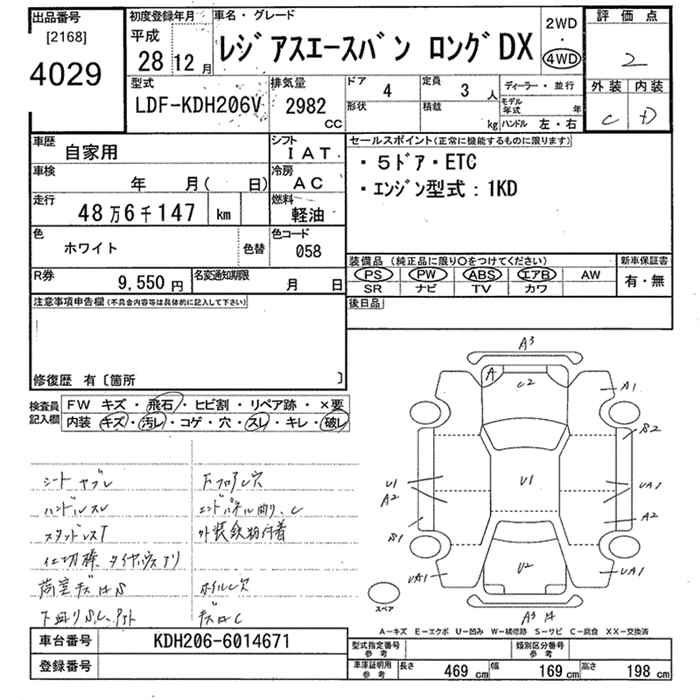 出品番号
[2168]
4029
初度登録年月
平成
28年12月
車名・グレード
レジアスエースバン ロングDX
2WD
・
4WD
評価点
2
外装 内装
C D
型式
LDF-KDH206V
排気量
2982
cc
ドア
4
定員
3人
形状
積載
kg
ディーラー・並行
モデル年式 年
ハンドル 左・右
車歴
自家用
シフト
IAT
車検
年 月( 日)
冷房
AC
走行
48万6千147 km
燃料
軽油
色
ホワイト
色替
色コード
058
R券
9,550円
名変通知期限
月 日
セールスポイント(正常に機能するものに限ります)
・5ドア・ETC
・エンジン型式:1KD
装備品 (純正品に限り○をつけてください)
PS PW ABS エアB AW
SR ナビ TV カワ
新車保証書
有・無
後日品
注意事項申告欄(不具合内容等は具体的に記入して下さい)
修復歴 有〔箇所 〕
検査員記入欄
FW キズ・飛石・ヒビ割・リペア跡・×要
内装 キズ・汚レ・コゲ・穴・スレ・キレ・破レ
シートヤブレ
ハンドルスレ
スタッドレスT
荷室キズ
下廻りS,C
下フロアし穴
エンドパネル曲り、C
外装鉄粉付着
ホイル穴
A3
A
C2
A1
S2
U1
U1
A2
UA1
A2
S1
UA1
U2
UA1
A3
スペア
A-キズ E-エクボ U-凹み W-補修跡 S-サビ C-腐食 XX-交換済
車台番号
KDH206-6014671
登録番号
型式指定番号
参考
類別区分番号
参考
車庫証明用
参考
長さ 469 cm 幅 169 cm 高さ 198 cm